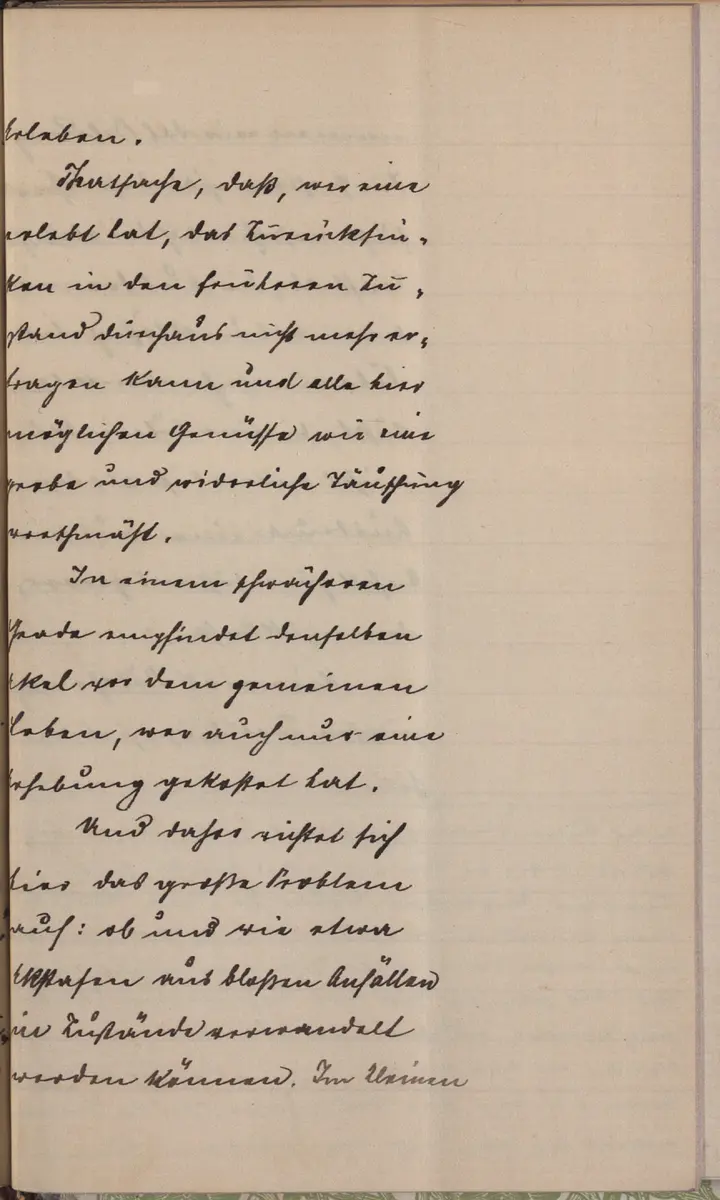 Erleben.
Thatsache, daß, wer eine
erlebt hat, das Zurücksin-
ken in den früheren Zu-
stand durchaus nicht mehr er-
tragen kann und alle hier
möglichen Genüsse wie eine
grobe und widerliche Täuschung
verschmäht.
In einem schwächeren
Grade empfindet denselben
Ekel vor dem gemeinen
Leben, wer auch nur eine
Erhebung gekostet hat.
Und daher richtet sich
hier das große Problem
auf: ob und wie etwa
Ekstasen aus bloßen Anfällen
in Zustände verwandelt
werden können. Im kleinen